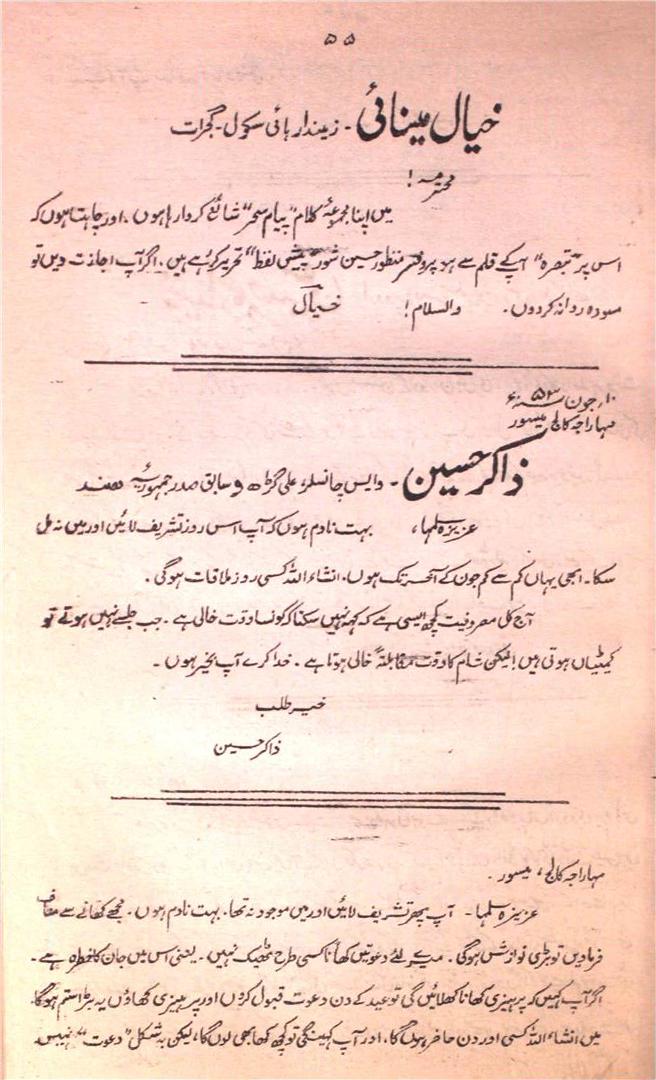 ۵۵
خیال مینائی - زمیندار ہائی سکول - گجرات
محترمہ!
میں اپنا مجموعۂ کلام "پیام سحر" شائع کروا رہا ہوں ۔ اور چاہتا ہوں کہ
اس پر "تبصرہ" آپ کے قلم سے ہو پروفیسر منظور حسین شور "پیش لفظ" تحریر کر رہے ہیں۔ اگر آپ اجازت دیں تو
مسودہ روانہ کردوں۔ والسلام! خیال
۱۰؍ جون ۵۳ سنہ ء
مہاراجہ کالج میسور
ذاکر حسین - وایس چانسلر، علی گڑھ و سابق صدر جمہوریہ ہند
عزیزہ سلمہا، بہت نادم ہوں کہ آپ اس روز تشریف لائیں اور میں نہ مل
سکا۔ ابھی یہاں کم سے کم جون کے آخر تک ہوں، انشاء اللہ کسی روز ملاقات ہوگی۔
آج کل مصروفیت کچھ ایسی ہے کہ کہہ نہیں سکتا کہ کونسا وقت خالی ہے۔ جب جلسے نہیں ہوتے تو
کمیٹیاں ہوتی ہیں! لیکن شام کا وقت مقابلتہً خالی ہوتا ہے۔ خدا کرے آپ بخیر ہوں۔
خیر طلب
ذاکر حسین
مہاراجہ کالج، میسور۔
عزیزہ سلمہا - آپ پھر تشریف لائیں اور میں موجود نہ تھا۔ بہت نادم ہوں۔ مجھے کھانے سے معاف
فرمادیں تو بڑی نوازش ہوگی۔ میرے لئے دعوتیں کھانا کسی طرح ٹھیک نہیں۔ یعنی اس میں جان کا خطرہ ہے۔
اگر آپ کہیں کہ پرہیزی کھانا کھلائیں گی تو عید کے دن دعوت قبول کروں اور پرہیزی کھاؤں یہ بڑا ستم ہوگا۔
میں انشاء اللہ کسی اور دن حاضر ہوں گا، اور آپ کہینگی تو کچھ کھا بھی لوں گا، لیکن بہ شکل "دعوت" نہیں۔